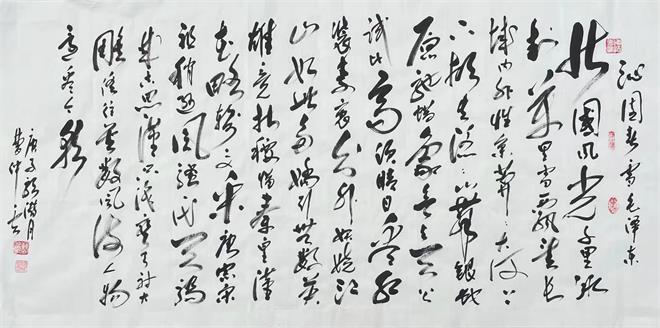 沁园春 雪 毛泽东
北國风光千里冰
封萬里雪飘望长
城内外惟余莽莽大河上
下顿失滔滔山舞银蛇
原驰蜡象欲与天公
试比高须晴日看红
装素裹分外妖娆江
山如此多娇引無数英
雄竞折腰惜秦皇漢
武略输文采唐宗宋
祖稍逊风骚一代天骄
成吉思漢只识弯弓射大
雕俱往矣数风流人物
还看今朝
庚子